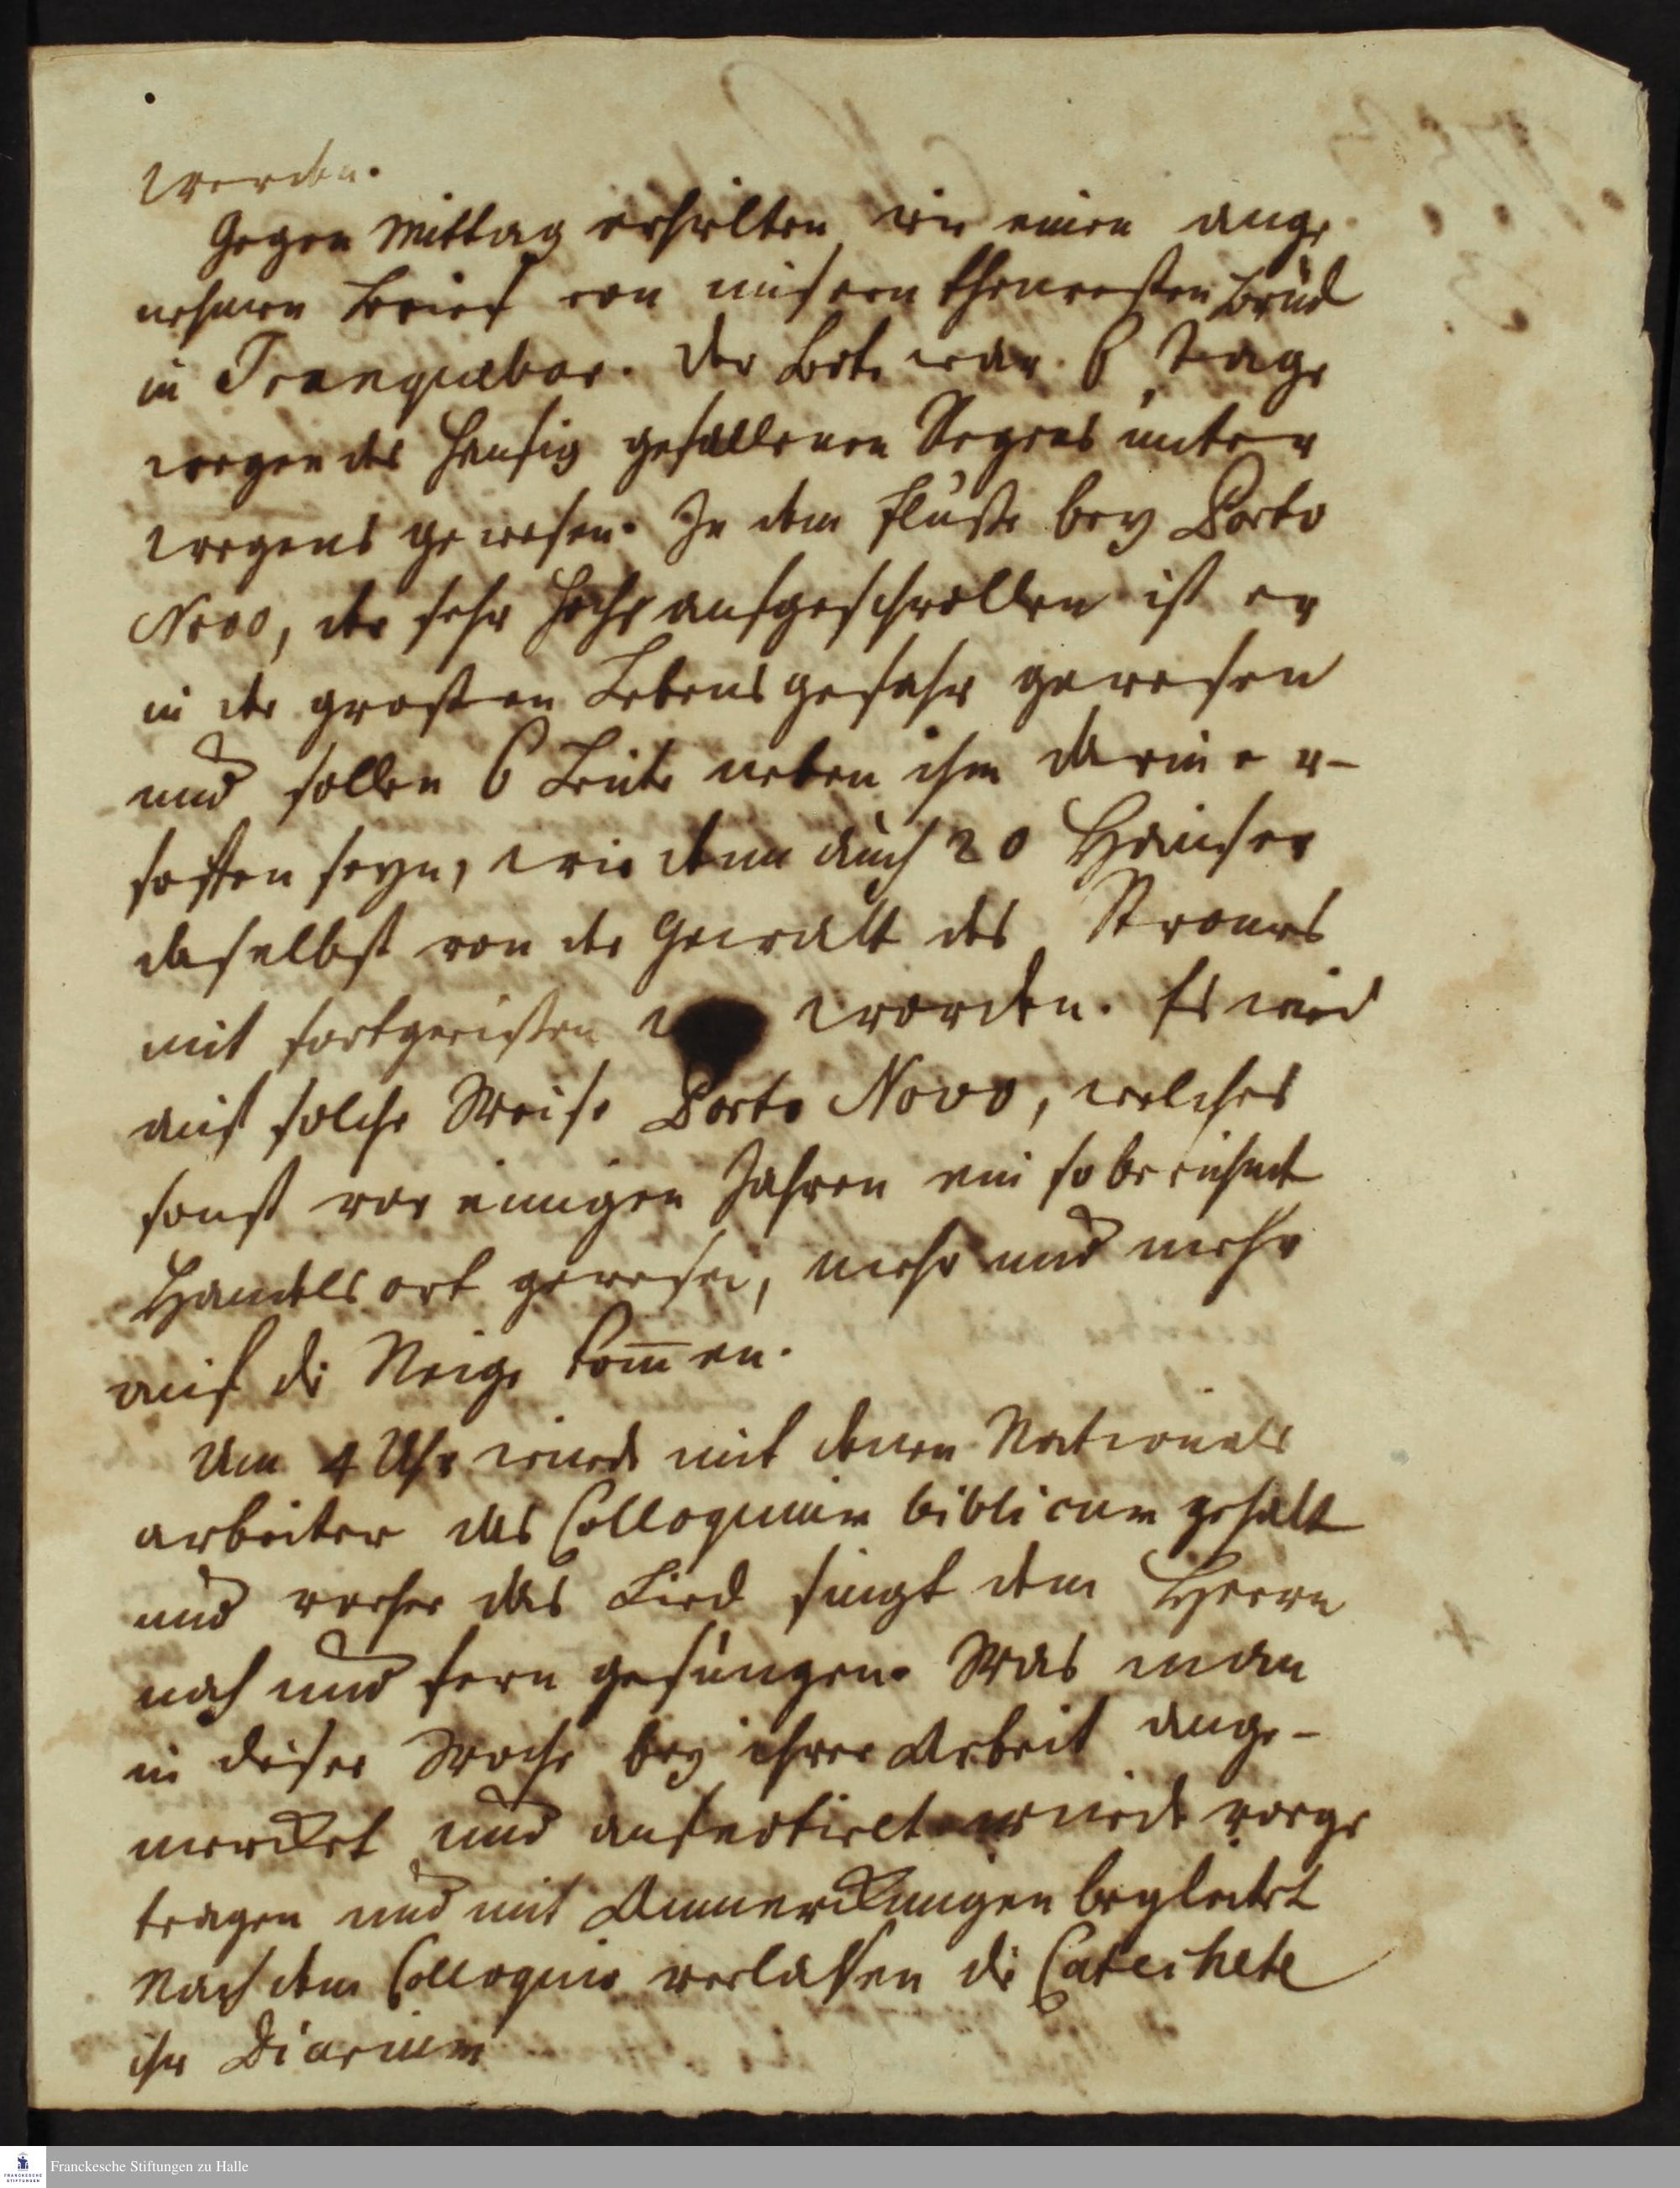 werden.
Gegen Mittag erhielten wir einen ange
nehmen Brief von unsern theuresten Brüd
in Tranquebar. Der Bote war 8 Tage
wegen des häufig gefallenen Regens unter
wegens gewesen. In dem Fluße bey Porto
Novo, der sehr hoch aufgeschwollen ist er
in der grosten Lebensgefahr gewesen
und sollen 6 Leute neben ihm darin er-
soffen seyn, wie denn auch 20 Häuser
daselbst von der Gewalt des Stromes
mit fortgerißen worden. Es wird
auf solche Weise Porto Novo, welches
sonst vor einigen Jahren ein so berühmt
Handelsort gewesen, mehr und mehr
auf die Neige kom̅en.
Um 4 Uhr wurde mit denen National
arbeiter das Colloquium biblicum gehalt
und vorher das Lied singt dem Herrn
nah und fern gesungen. Was man
in dieser Woche bey ihrer Arbeit ange-
mercket und wurde vorge
tragen und mit Anmerckungen begleitet
Nach dem Colloquio verlasen die Catechete
ihr Diarium
Franckesche Stiftungen zu Halle